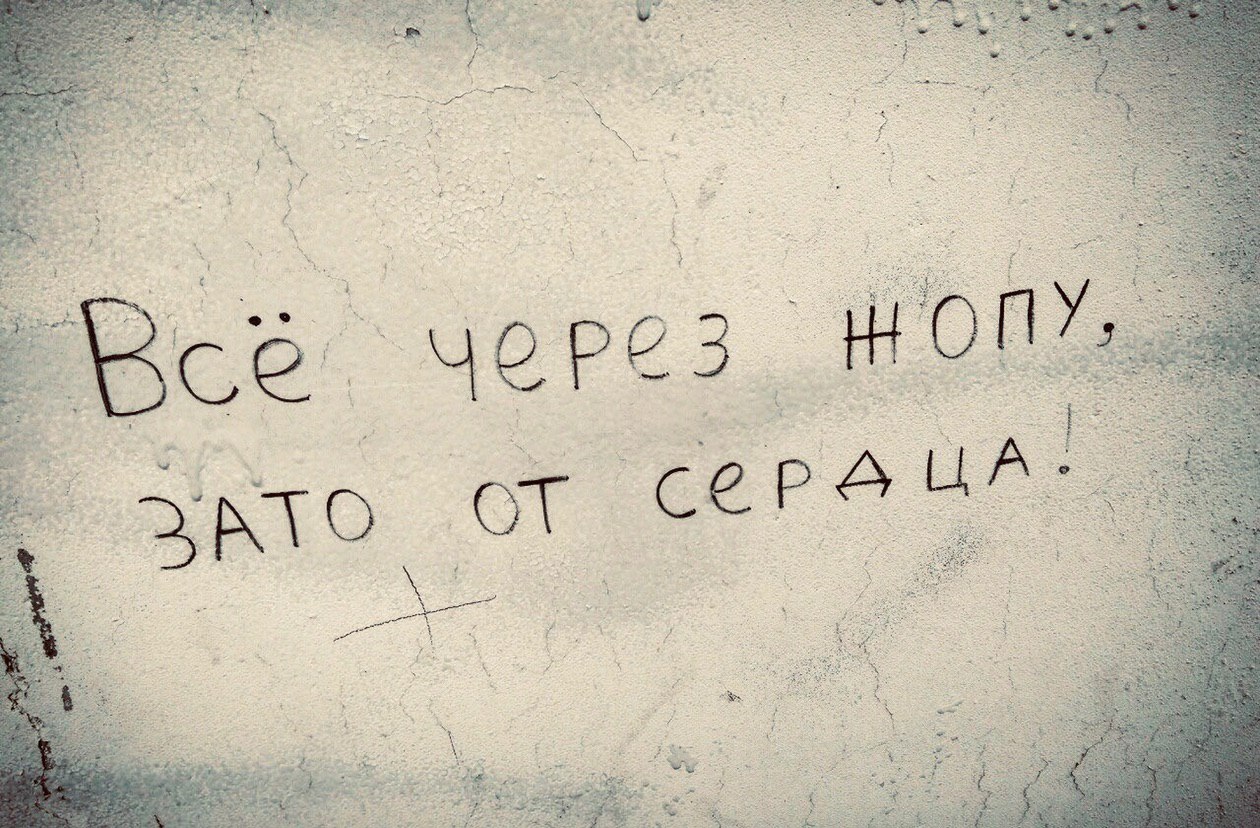 Всё через жопу,
ЗАТО ОТ сердцА!